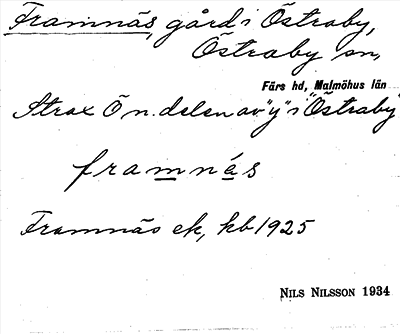 Framnäs, gård i Östraby,
Östraby sn,
Färs hd, Malmöhus län
Strax Ö n. delen av "y" i "Östraby"
framnás
Framnäs ek, kb 1925
NILS NILSSON 1934